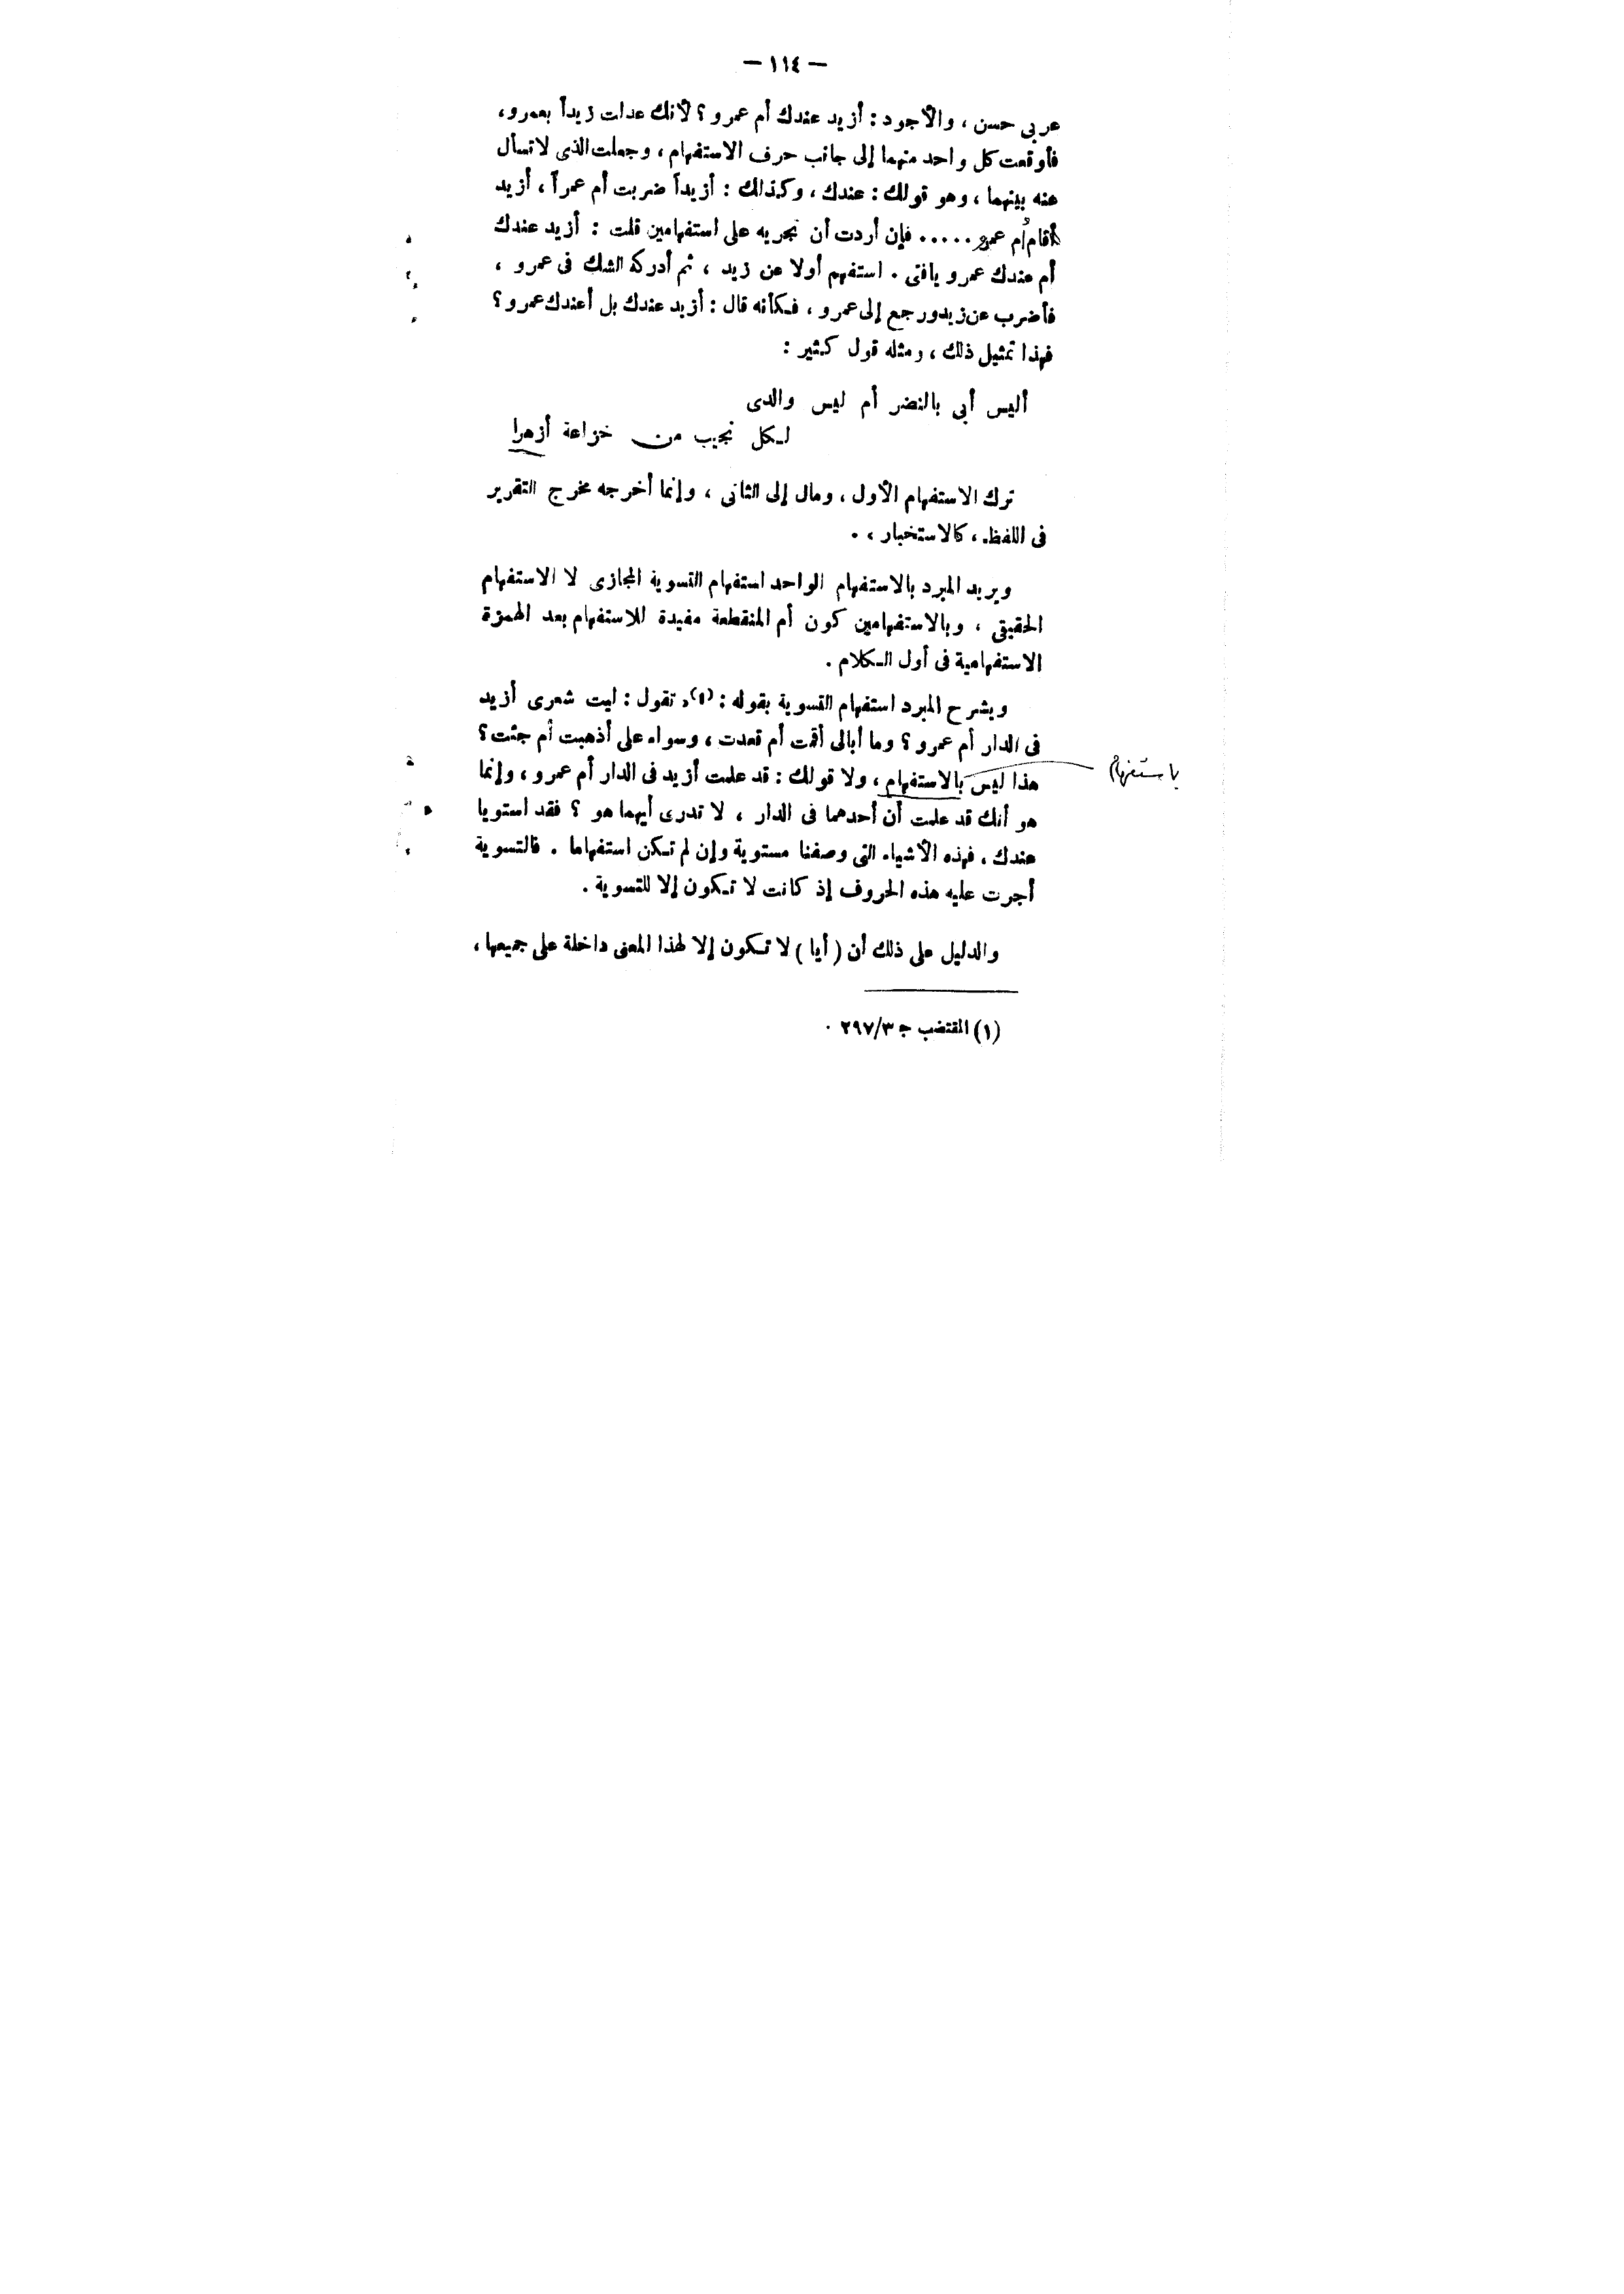 — ١١٤ —
عربى حسن ، والأجود : أزيد عندك أم عمرو ؟ لأنك عدلت زيداً بعمرو ،
فأوقعت كل واحد منهما إلى جانب حرف الاستفهام ، وجعلت الذى لا تسأل
عنه بينهما ، وهو قولك : عندك ، وكذلك : أزيداً ضربت أم عمراً ، أزيد
أقام أم عمرو ..... فإن أردت أن تجريه على استفهامين قلت : أزيد عندك
أم عندك عمرو يافتى . استفهم أولا عن زيد ، ثم أدركه الشك فى عمرو ،
فأضرب عن زيد ورجع إلى عمرو ، فكأنه قال : أزيد عندك بل أعندك عمرو ؟
فهذا تمثيل ذلك ، ومثله قول كثير :
أليس أبى بالنضر أم ليس والدى
لكل نجيب من خزاعة أزهرا
ترك الاستفهام الأول ، ومال إلى الثانى ، وإنما أخرجه مخرج التقرير
فى اللفظ ، كالاستخبار ، .
ويريد المبرد بالاستفهام الواحد استفهام التسوية المجازى لا الاستفهام
الحقيقى ، وبالاستفهامين كون أم المنقطعة مفيدة للاستفهام بعد الهمزة
الاستفهامية فى أول الكلام .
ويشرح المبرد استفهام التسوية بقوله : (١) « تقول : ليت شعرى أزيد
فى الدار أم عمرو ؟ وما أبالى أقمت أم قعدت ، وسواء على أذهبت أم جئت ؟
هذا ليس بالاستفهام ، ولا قولك : قد علمت أزيد فى الدار أم عمرو ، وإنما
باستفهام
هو أنك قد علمت أن أحدهما فى الدار ، لا تدرى أيهما هو ؟ فقد استويا
عندك ، فهذه الأشياء التى وصفنا مستوية وإن لم تكن استفهاما . فالتسوية
أجرت عليه هذه الحروف إذ كانت لا تكون إلا للتسوية .
والدليل على ذلك أن ( أيا ) لا تكون إلا لهذا المعنى داخلة على جميعها ،
(١) المقتضب ج ٣/٢٩٧ .